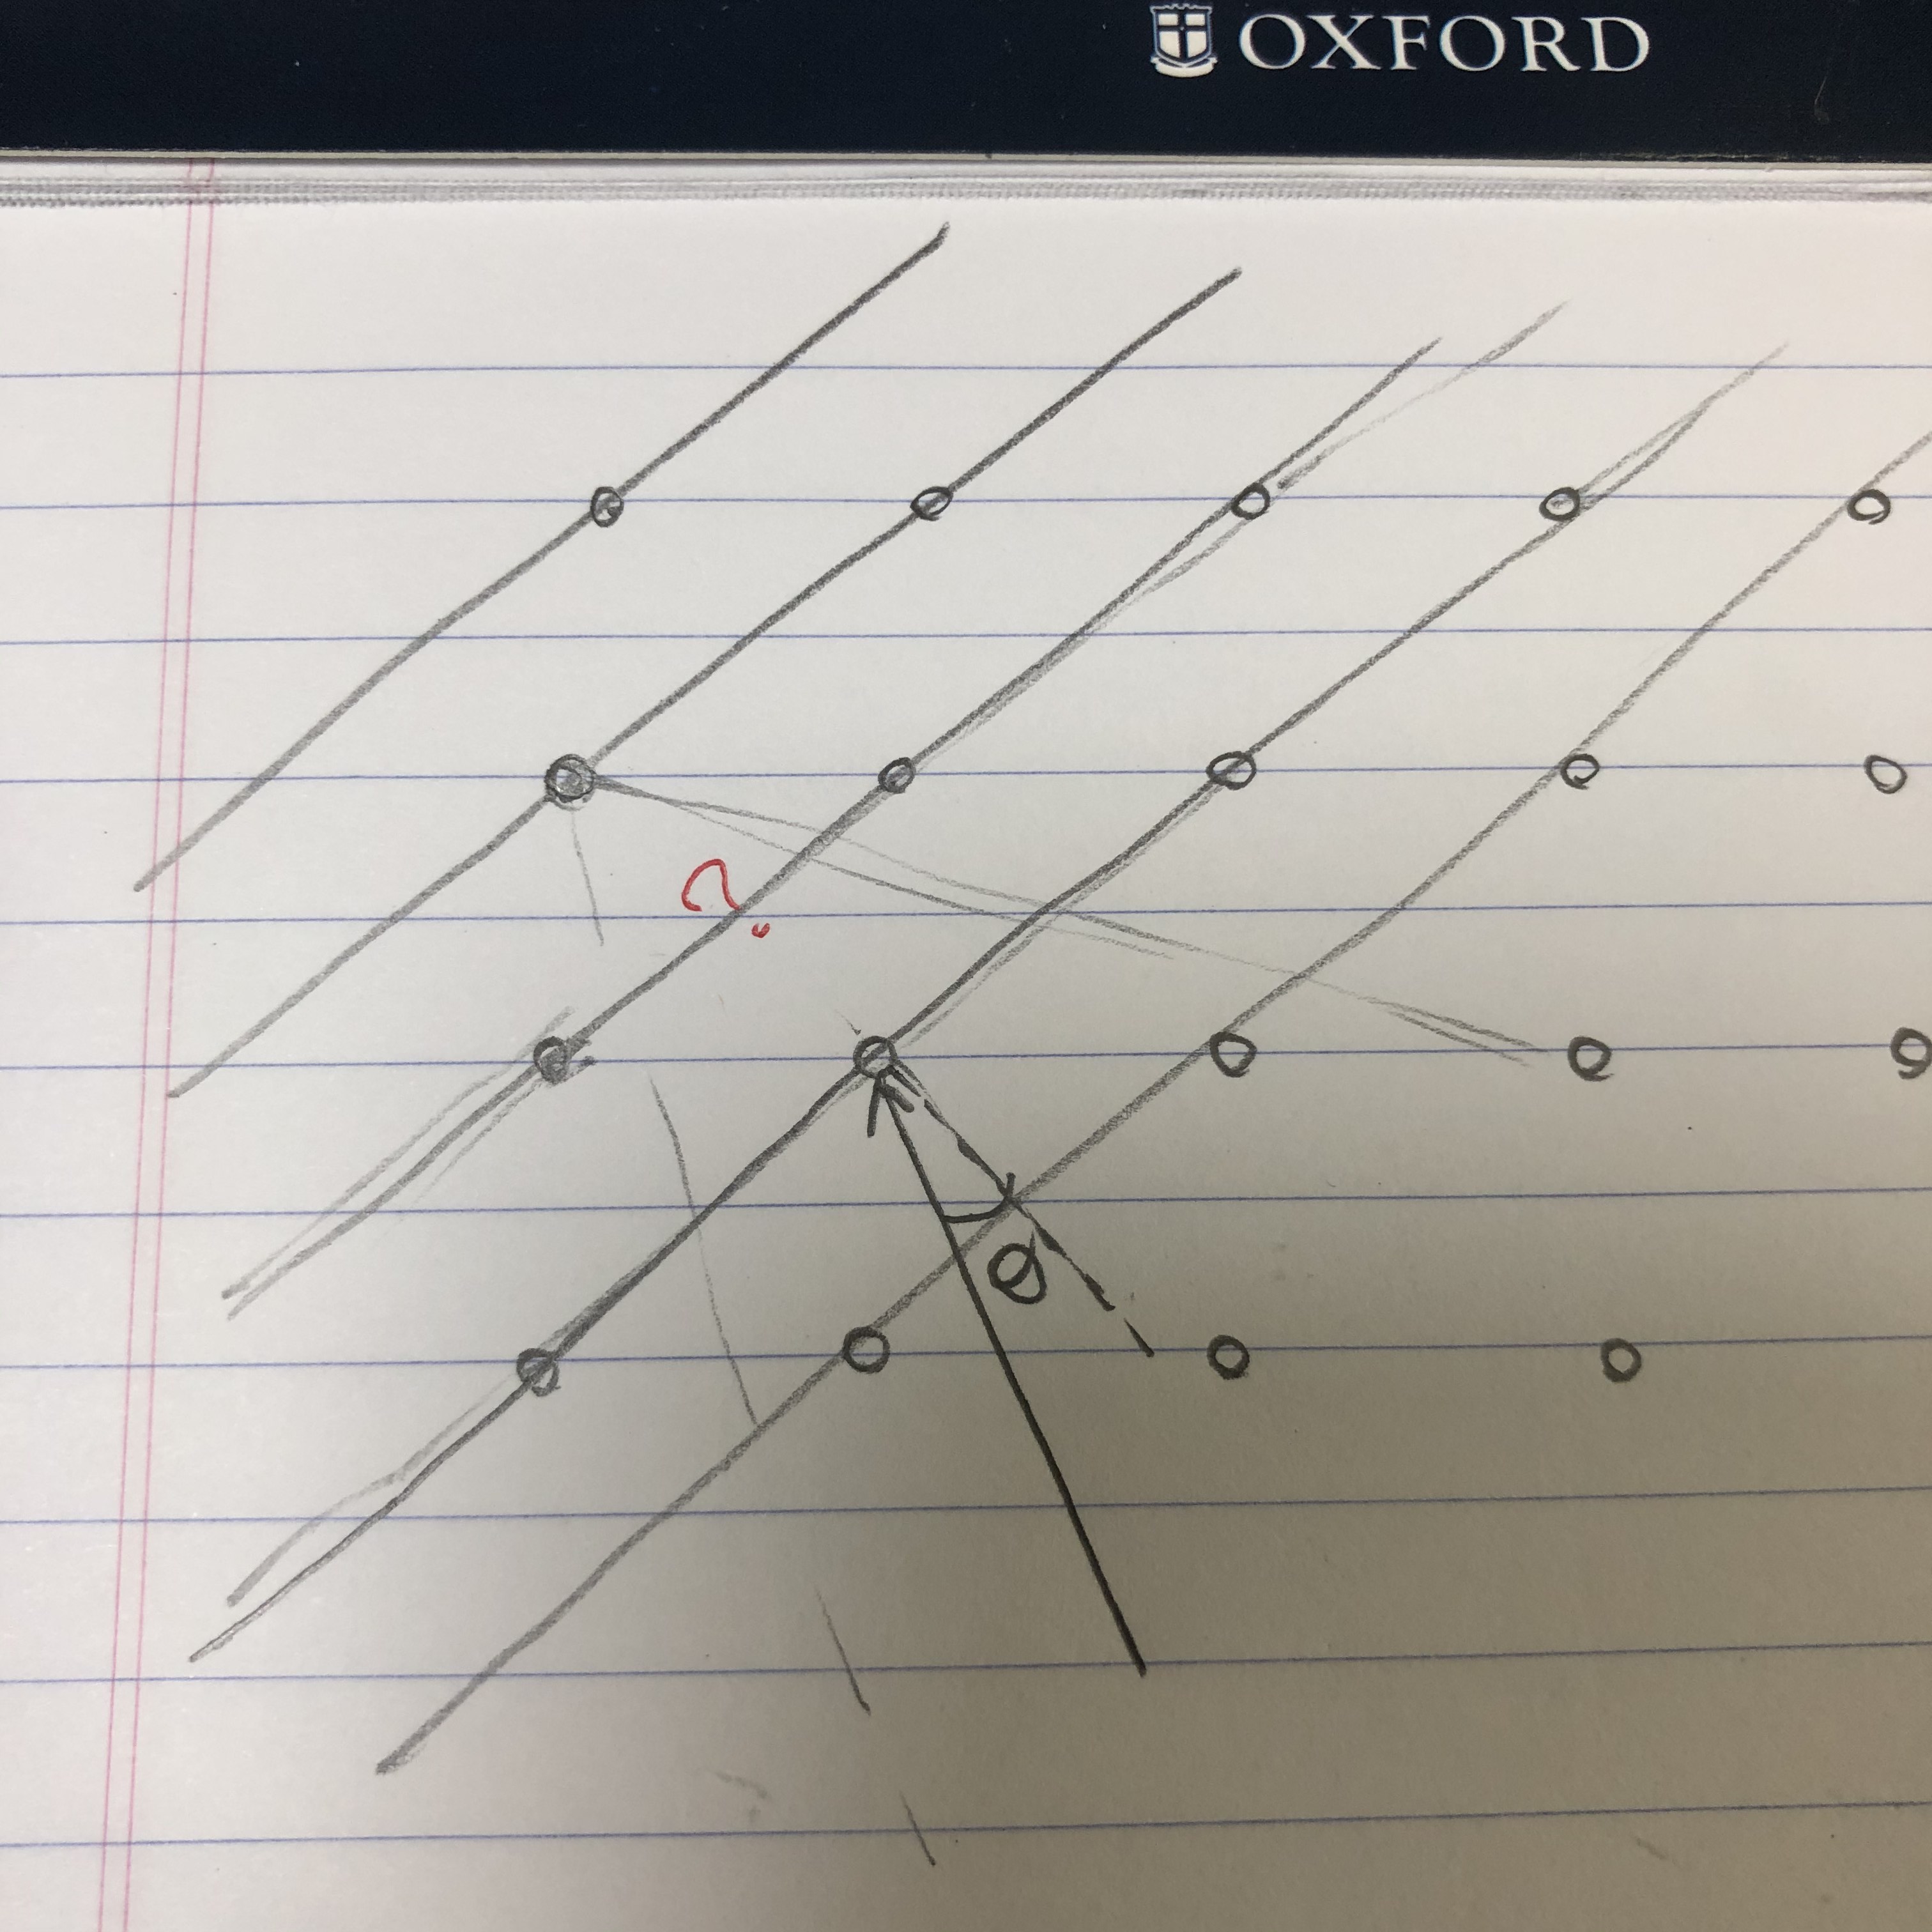 OXFORD
?
θ